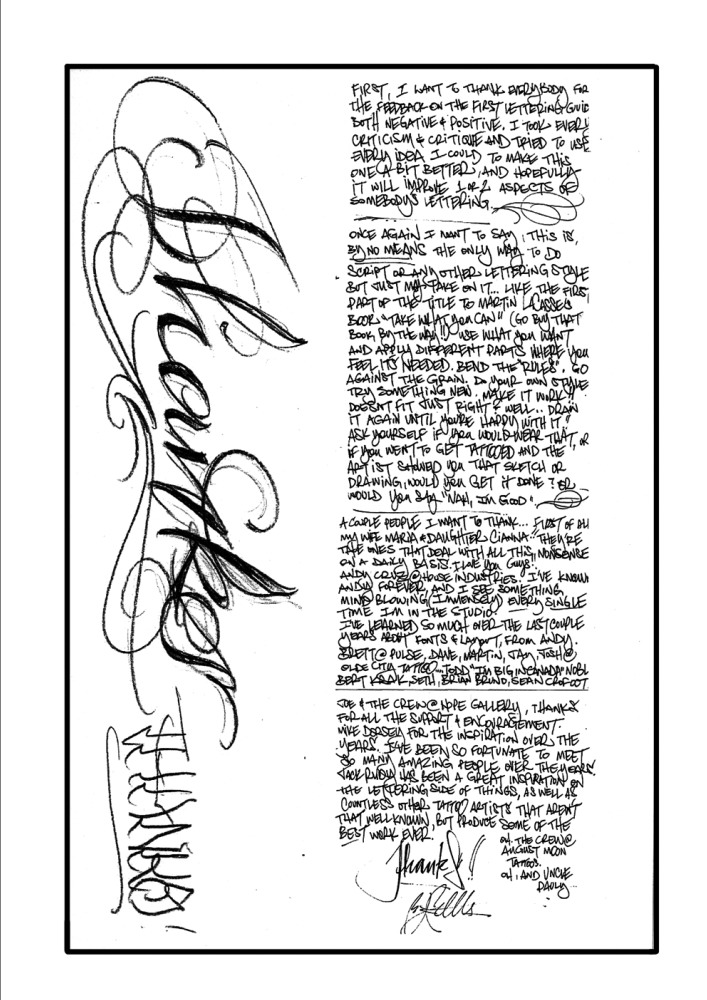 Thanks
THANKS!
FIRST, I WANT TO THANK EVERYBODY FOR
THE FEEDBACK ON THE FIRST LETTERING GUIDE
BOTH NEGATIVE & POSITIVE. I TOOK EVERY
CRITICISM & CRITIQUE AND TRIED TO USE
EVERY IDEA I COULD TO MAKE THIS
ONE A BIT BETTER, AND HOPEFULLY
IT WILL IMPROVE 1 OR 2 ASPECTS OF
SOMEBODYS LETTERING.
ONCE AGAIN I WANT TO SAY, THIS IS,
BY NO MEANS THE ONLY WAY TO DO
SCRIPT OR ANY OTHER LETTERING STYLE
BUT JUST MY TAKE ON IT... LIKE THE FIRST
PART OF THE TITLE TO MARTIN LACASSES
BOOK "TAKE WHAT YOU CAN" (GO BUY THAT
BOOK, BY THE WAY!) USE WHAT YOU WANT
AND APPLY DIFFERENT PARTS WHERE YOU
FEEL ITS NEEDED. BEND THE "RULES". GO
AGAINST THE GRAIN. DO YOUR OWN STYLE
TRY SOMETHING NEW. MAKE IT WORK!!
DOESNT FIT JUST RIGHT? WELL.. DRAW
IT AGAIN UNTIL YOU'RE HAPPY WITH IT!
ASK YOURSELF IF YOU WOULD WEAR THAT, OR
IF YOU WENT TO GET TATTOOED AND THE
ARTIST SHOWED YOU THAT SKETCH OR
DRAWING, WOULD YOU GET IT DONE? OR
WOULD YOU SAY "NAH, I'M GOOD".
A COUPLE PEOPLE I WANT TO THANK... FIRST OF ALL
MY WIFE MARIA & DAUGHTER CIANNA. THEY'RE
THE ONES THAT DEAL WITH ALL THIS NONSENSE
ON A DAILY BASIS. I LOVE YOU GUYS!
ANDY CRUZ @ HOUSE INDUSTRIES! I'VE KNOWN
ANDY FOREVER AND I SEE SOMETHING
MIND BLOWING (IMMENSELY) EVERY SINGLE
TIME I'M IN THE STUDIO
I'VE LEARNED SO MUCH OVER THE LAST COUPLE
YEARS ABOUT FONTS & LAYOUT, FROM ANDY.
BRETT @ PULSE, DAVE, MARTIN, JAY, JOSH @
OLDE CITY TATTOO... TODD "I'M BIG IN CANADA" NOBLE
BERT KRAK, SETH, BRIAN BRUNO, SEAN CROFOOT
JOE & THE CREW @ NOPE GALLERY, THANKS
FOR ALL THE SUPPORT & ENCOURAGEMENT.
MIKE DORSEY FOR THE INSPIRATION OVER THE
YEARS. I'VE BEEN SO FORTUNATE TO MEET
SO MANY AMAZING PEOPLE OVER THE YEARS.
JACK RUDY HAS BEEN A GREAT INSPIRATION ON
THE LETTERING SIDE OF THINGS, AS WELL AS
COUNTLESS OTHER TATTOO ARTISTS THAT AREN'T
THAT WELL KNOWN, BUT PRODUCE SOME OF THE
BEST WORK EVER!
OH, THE CREW @
AUGUST MOON
TATTOOS.
OH, AND UNCLE
PAULY
Thanks!!